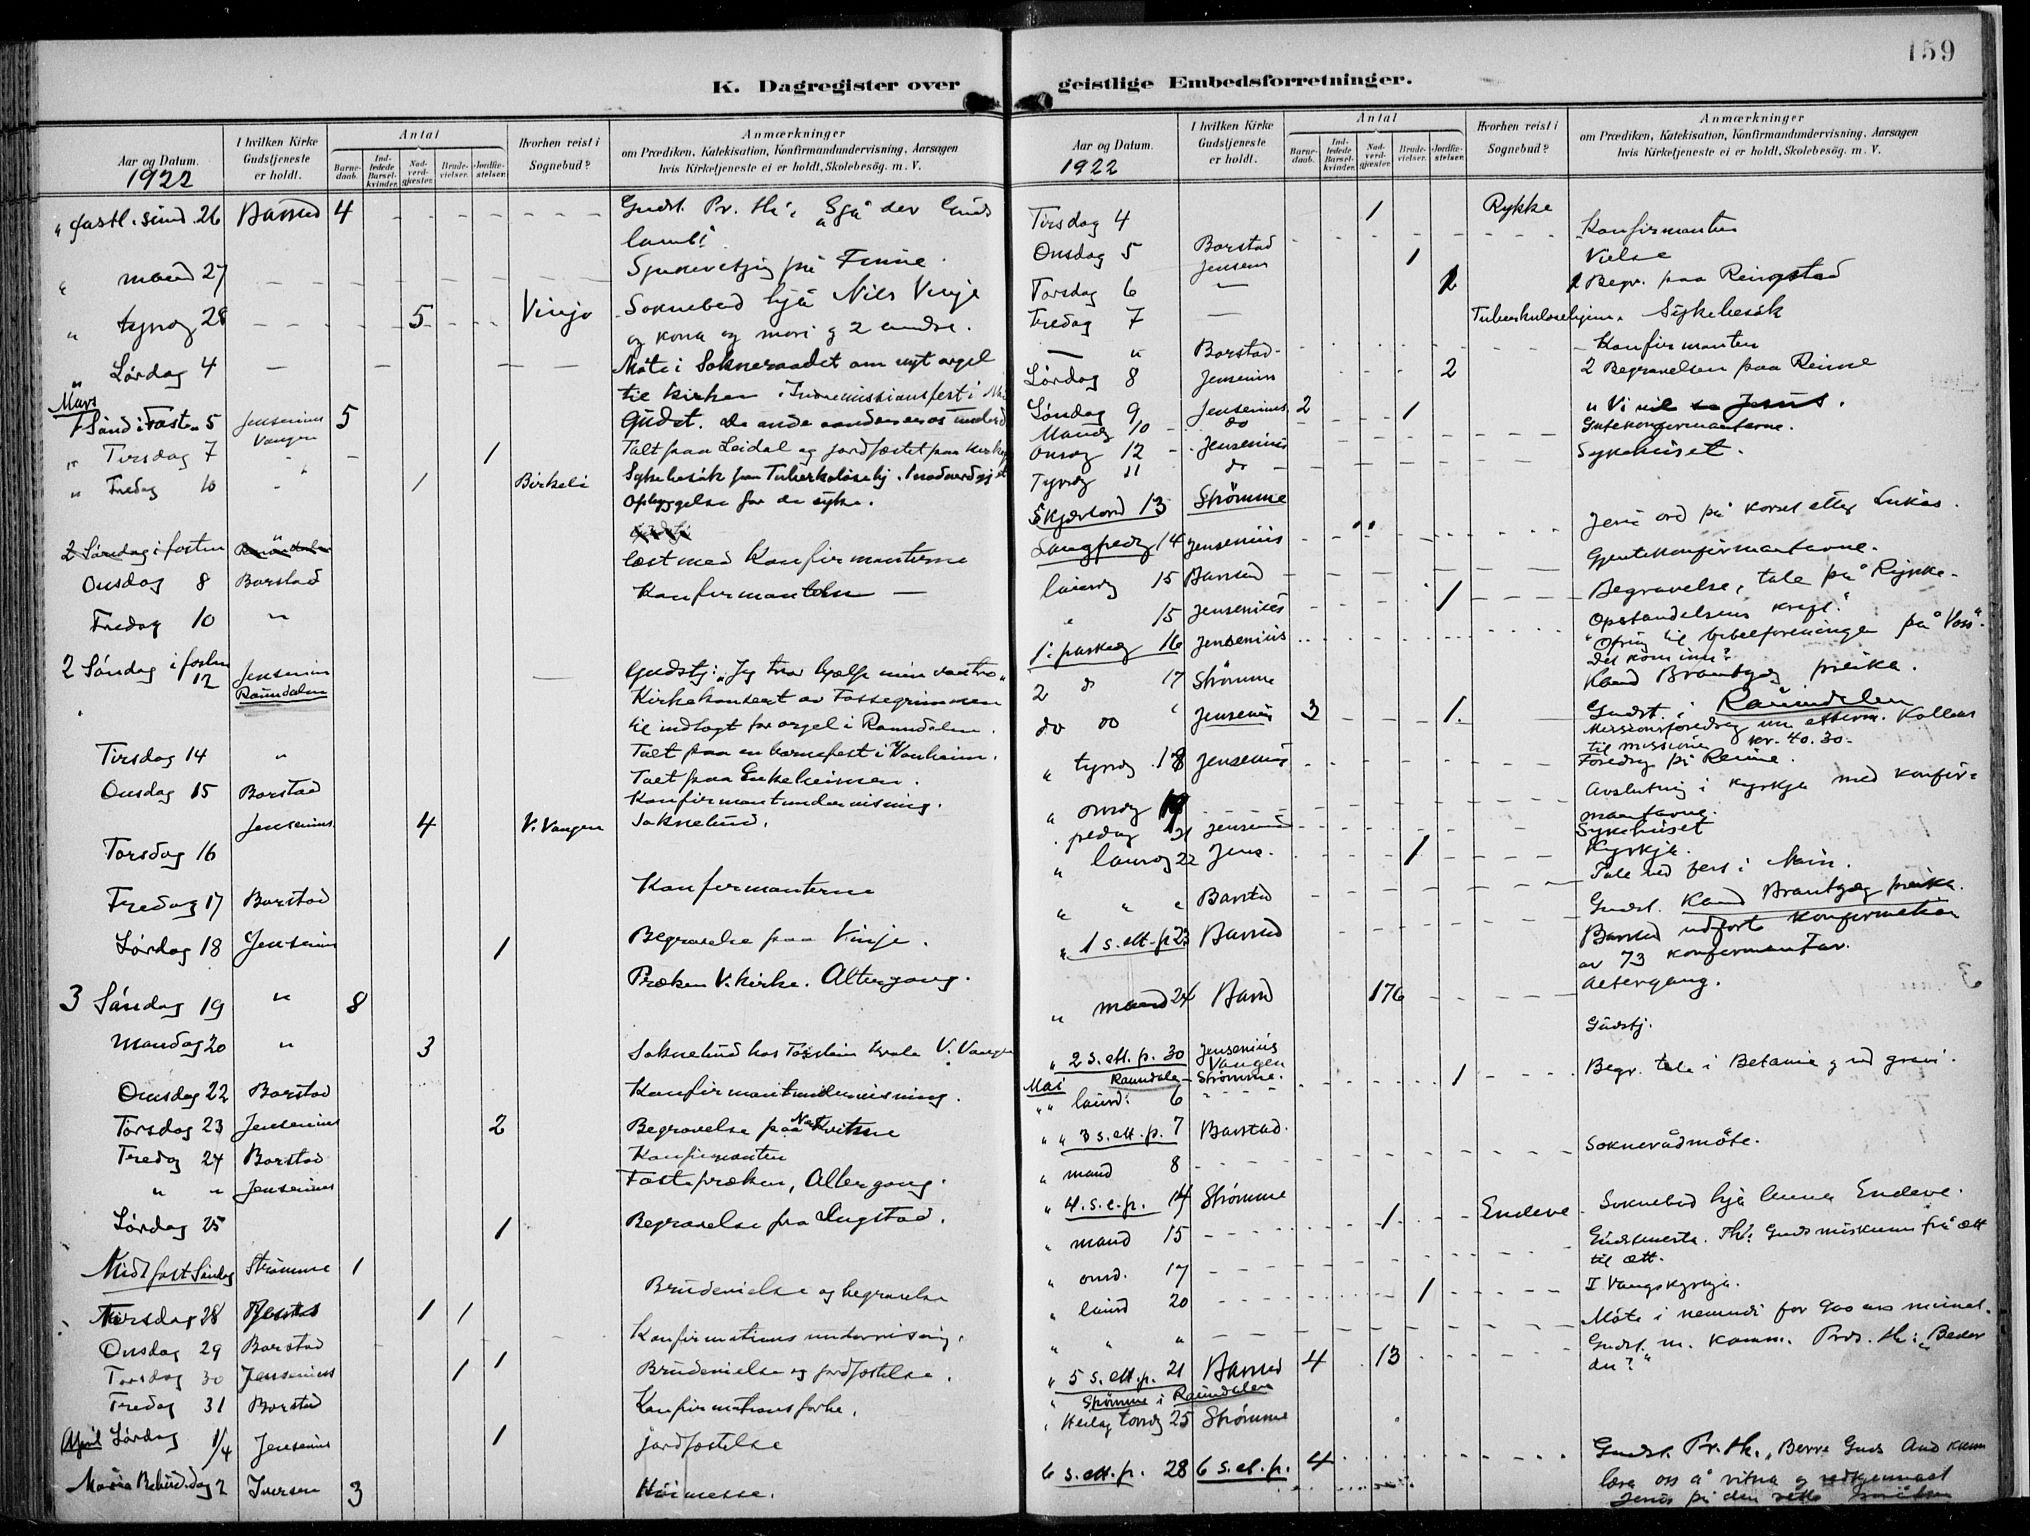 159
K. Dagregister over geistlige Embedsforretninger.
Aar og Datum.
1922
I hvilken Kirke Gudstjeneste er holdt.
Antal
Barnedaab.
Indledede Barselkvinder.
Nadverdgjester.
Brudevielser.
Jordfæstelser.
Hvorhen reist i Sognebud?
Anmærkninger
om Prædiken, Katekisation, Konfirmandundervisning, Aarsagen
hvis Kirketjeneste ei er holdt, Skolebesøg. m. V.
" fastl. sund 26 Barstad 4 Gudst. Pr. th: "Sjå der Guds
lamb"
" mand 27 på Finne.
" tysdag 28 5 Vinje Soknebud hjå Nils Vinje
og kona og mori og 2 andre.
" Lørdag 4 Møte i Sokneraadet om nyt orgel
Mars til kirken. Indremissionsfest i
1 Sønd i Faste 5 Jensenius 5
Vangen
" Tirsdag 7 " 1 Talt paa Leidal og jordfæstet paa
" Fredag 10 " 1 Birkeli Sykebesøk paa Tuberkulosehj.
Opbyggelse for de syke.
2 Søndag i fasten Raundalen
læst med Konfirmanterne
Onsdag 8 Barstad
Konfirmanten
Fredag 10 "
2 Søndag i fasten
12 Jensenius Gudstj: "Jeg tror hjælp min vantro"
Raundalen Kirkekonsert av Fossegrimmen
til indtægt for orgel i Raundalen.
Tirsdag 14 " Talt paa en barnefest i Vonheim.
Talt paa Enkeheimen.
Onsdag 15 Barstad Konfirmantundervisning.
Jensenius 4 V. Vangen Soknebud.
Torsdag 16
Fredag 17 Barstad Konfirmanterne
Lørdag 18 Jensenius 1 Begravelse paa Vinje.
3 Søndag 19 " 8 Præken V. kirke. Altergang.
Mandag 20 " 3 Soknebud hos Torstein V. Vangen
Onsdag 22 Barstad Konfirmantundervisning.
Torsdag 23 Jensenius 2 Begravelse paa
Fredag 24 Barstad Konfirmanten
" " Jensenius Fastepræken, Altergang.
Lørdag 25 1 Begravelse fra
Midtfast Søndag Strømme 1
Tirsdag 28 1 1 Brudevielse og begravelse
Onsdag 29 Barstad Konfirmationsundervisning.
Torsdag 30 Jensenius 1 1 Brudevielse og jordfæstelse.
Fredag 31 Barstad
April Lørdag 1/4 Jensenius 1 jordfæstelse
Maria Bebud. dag 2 Iversen 3 Høimesse.
Aar og Datum.
1922
I hvilken Kirke Gudstjeneste er holdt.
Antal
Barnedaab.
Indledede Barselkvinder.
Nadverdgjester.
Brudevielser.
Jordfæstelser.
Hvorhen reist i Sognebud?
Anmærkninger
om Prædiken, Katekisation, Konfirmandundervisning, Aarsagen
hvis Kirketjeneste ei er holdt, Skolebesøg. m. V.
Tirsdag 4 1 Rykke
Onsdag 5 Barstad Konfirmanten
Jensen 1 Vielse
Torsdag 6 — 1 Begr. paa Reingstad
Fredag 7 — Tuberkulosehjem. Sykebesøk
— " Barstad Konfirmanten
Lørdag 8 Jensenius 2 2 Begravelser paa Reime
Søndag 9 Jensenius 2 1 "Vi vil se Jesus".
Mandag 10 do Gutekonfirmanterne.
onsdag 12 Jensenius Sykehuset.
Tysdag 11 do
Skjærtorsd 13 Strømme
Langfredag 14 Jensenius Jesu ord på korset etter Lukas.
laurdag 15 Barstad Gjentekonfirmantarne.
" 15 Jensenius 1 Begravelse, tale på Rykke.
1. paskedag 16 Jensenius "Opstandelsens kraft"
Ofring til bibelforeningen på "Voss".
2 do 17 Strømme Kand Brantzæg preika.
do do " Jensenius 3 1 Gudst. i Raundalen
til missionen kr. 40.30.
" tysdag 18 Jensenius Foredrag på Reime.
" onsdag 19 Avslutning i kyrkja med konfirmantarne.
fredag 21 Jensenius Sykehuset
" laurdag 22 Jens. 1 Kyrkja.
" " " Barstad Tale ved fest i
" 1 s. ett. p. 23 Barstad Gudst. Kand Brantzæg preika.
Barstad utførte konfirmation
av 73 konfirmantar.
" mand 24 Barst 176 Altergang.
" 2 s. ett. p. 30 Jensenius Gudstj.
Vangen
Mai Raundalen – Strømme.
" " laurd. 6 1 Begr. tale i Betania og ved gravi.
" " 3 s. ett. p. 7 Barstad.
" mand 8 Soknerådmøte.
" 4. s. e. p. 14 Strømme
" mand 15 1 Endeve Soknebud hjå Anna Endeve.
" onsd. 17 Gudsteneste. Th: Guds miskunn frå ætt
til ætt.
" laurd 20 1 I Vangskyrkja.
" " " Møte i nemndi for 900 års minnet.
" 5 s. ett. p. 21 Barstad 4 13 Gudst. m. komm. Pr. th: "Beder
du?"
" Strømme i Raundalen
" Heilag torsdag 25 Strømme
6 s. ett. p. 28 6 s. et. p. 4 Gudst. Pr. th. "Berre Guds And kann
læra oss å vitna og vedkjennast
Jesus på den rette